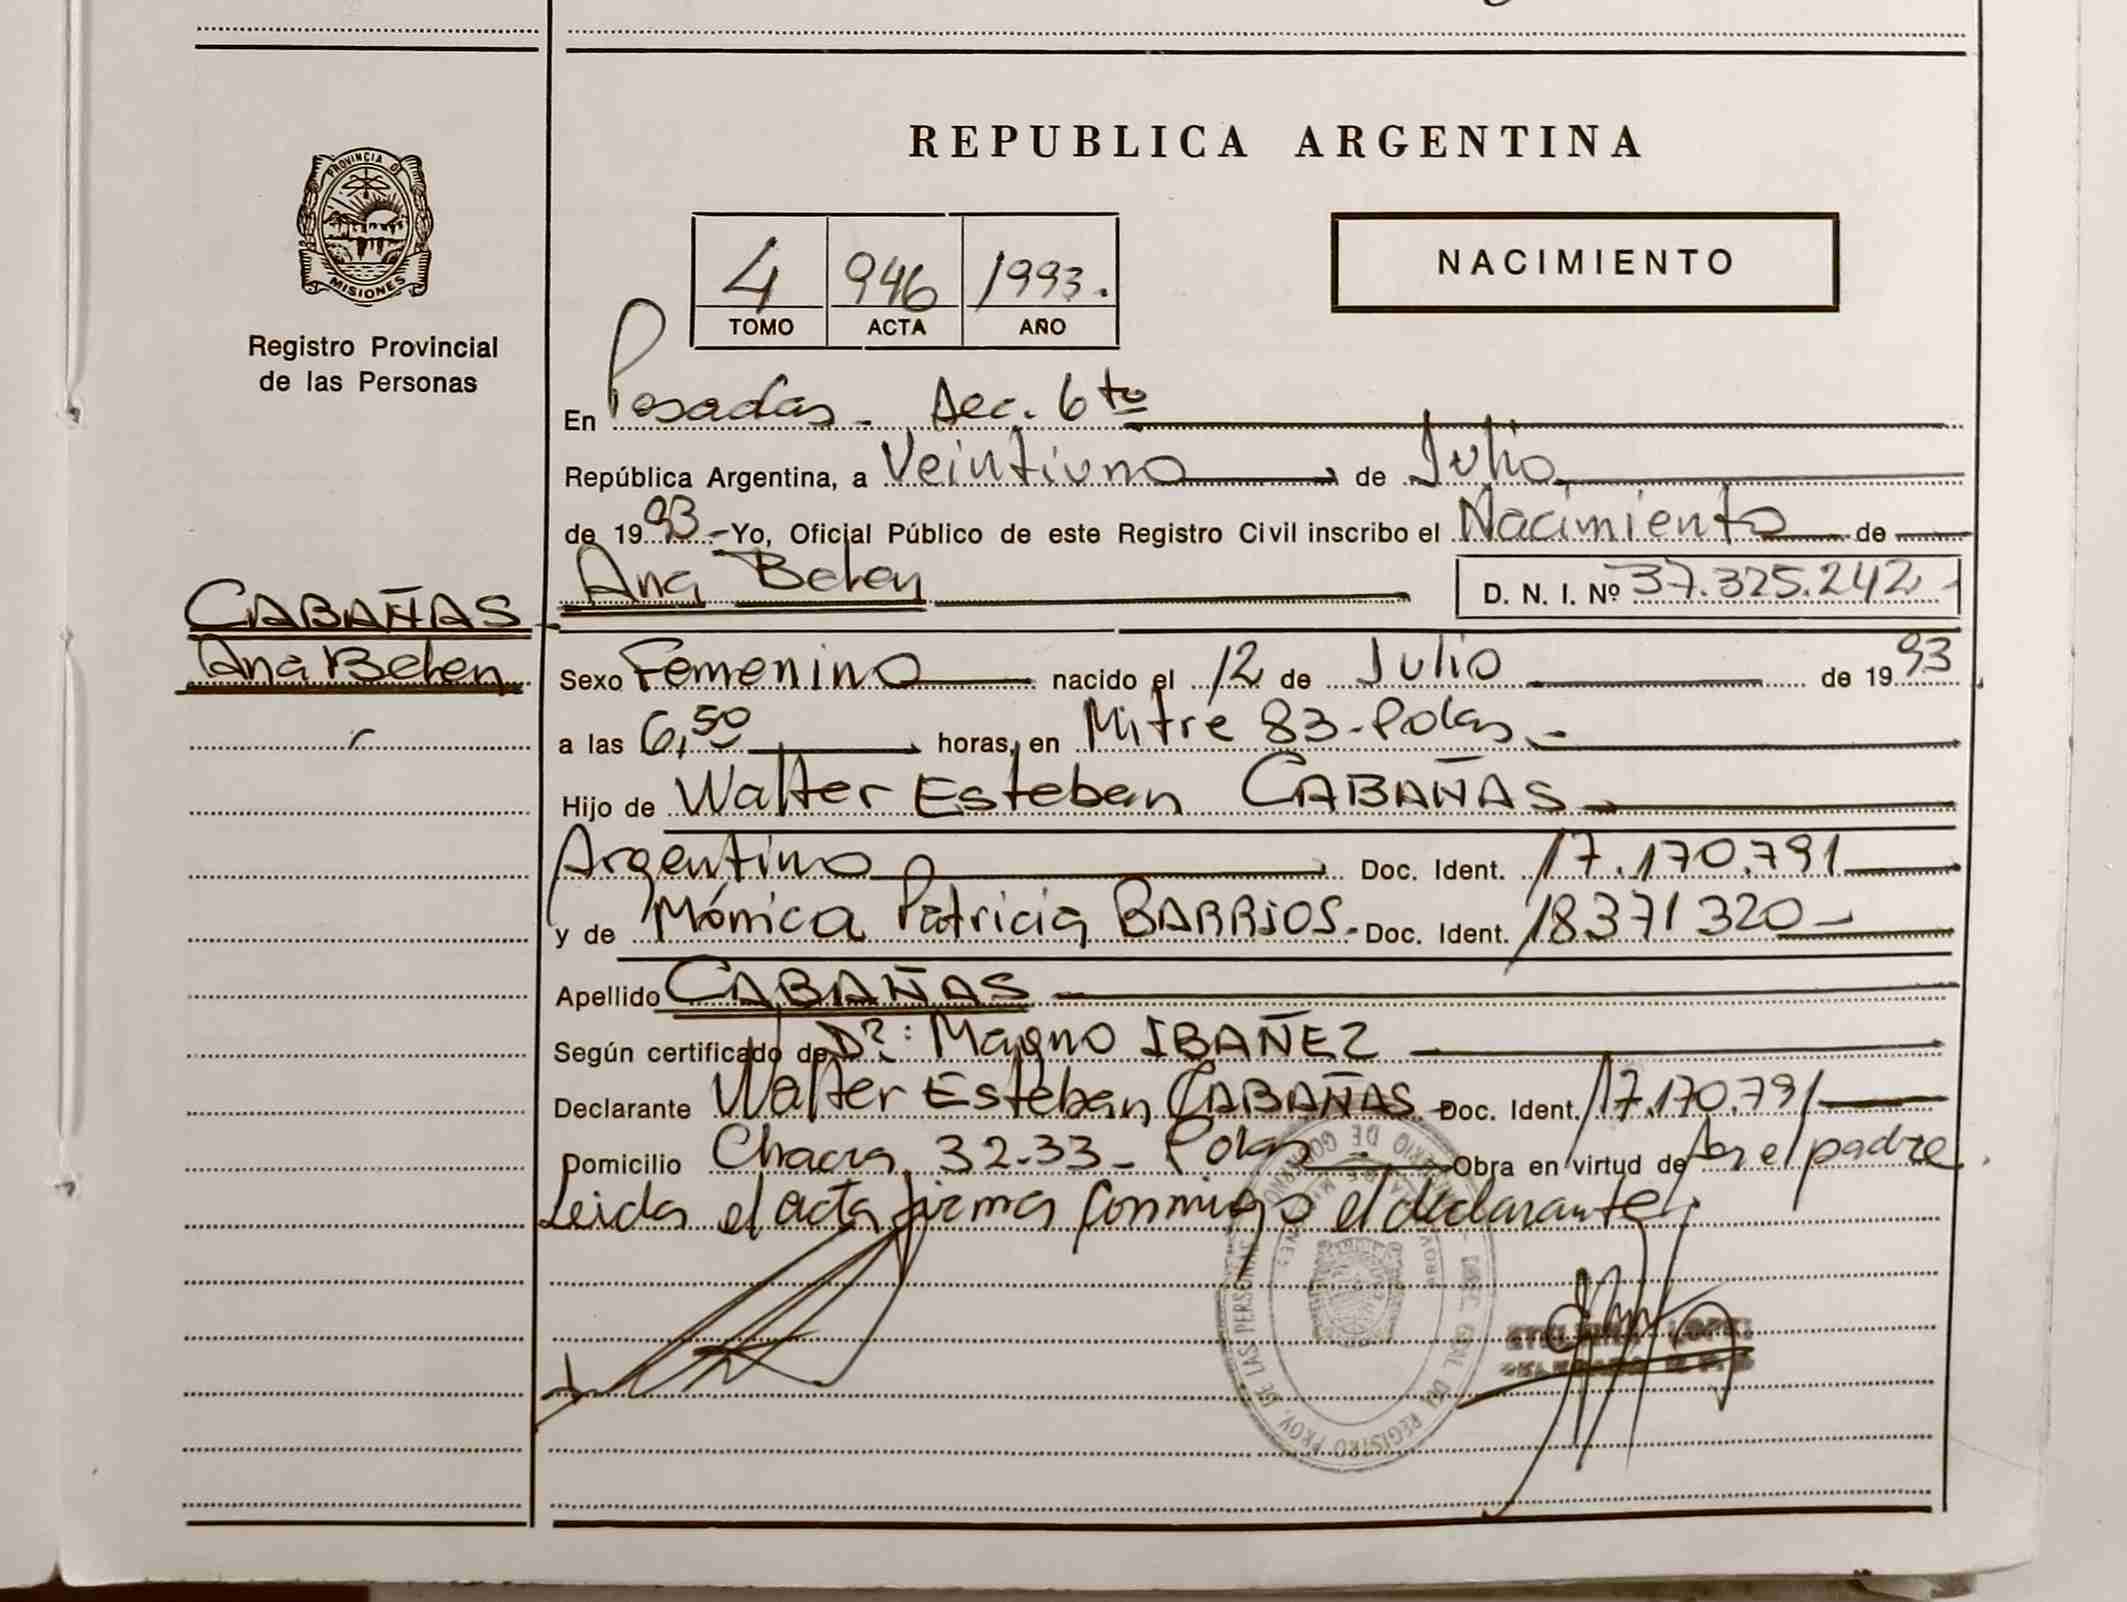 REPUBLICA ARGENTINA
PROVINCIA D
MISIONES
Registro Provincial
de las Personas
4 946 1993.
TOMO ACTA AÑO
NACIMIENTO
En Posadas - Sec. 6to
República Argentina, a Veintiuno de Julio
de 1993 - Yo, Oficial Público de este Registro Civil inscribo el Nacimiento de
Ana Belen D. N. I. Nº 37.325.242 -
CABAÑAS
Ana Belen
Sexo Femenino nacido el 12 de Julio de 1993
a las 6,50 horas, en Mitre 83 - Pdas -
Hijo de Walter Esteban CABAÑAS
Argentino Doc. Ident. 17.170.791
y de Mónica Patricia BARRIOS - Doc. Ident. 18371320 -
Apellido CABAÑAS
Según certificado de Dr: Magno IBAÑEZ
Declarante Walter Esteban CABAÑAS Doc. Ident. 17.170.791
Domicilio Chacra 32-33 - Pdas Obra en virtud de Ser el padre
Leida el acta firma conmigo el declarante